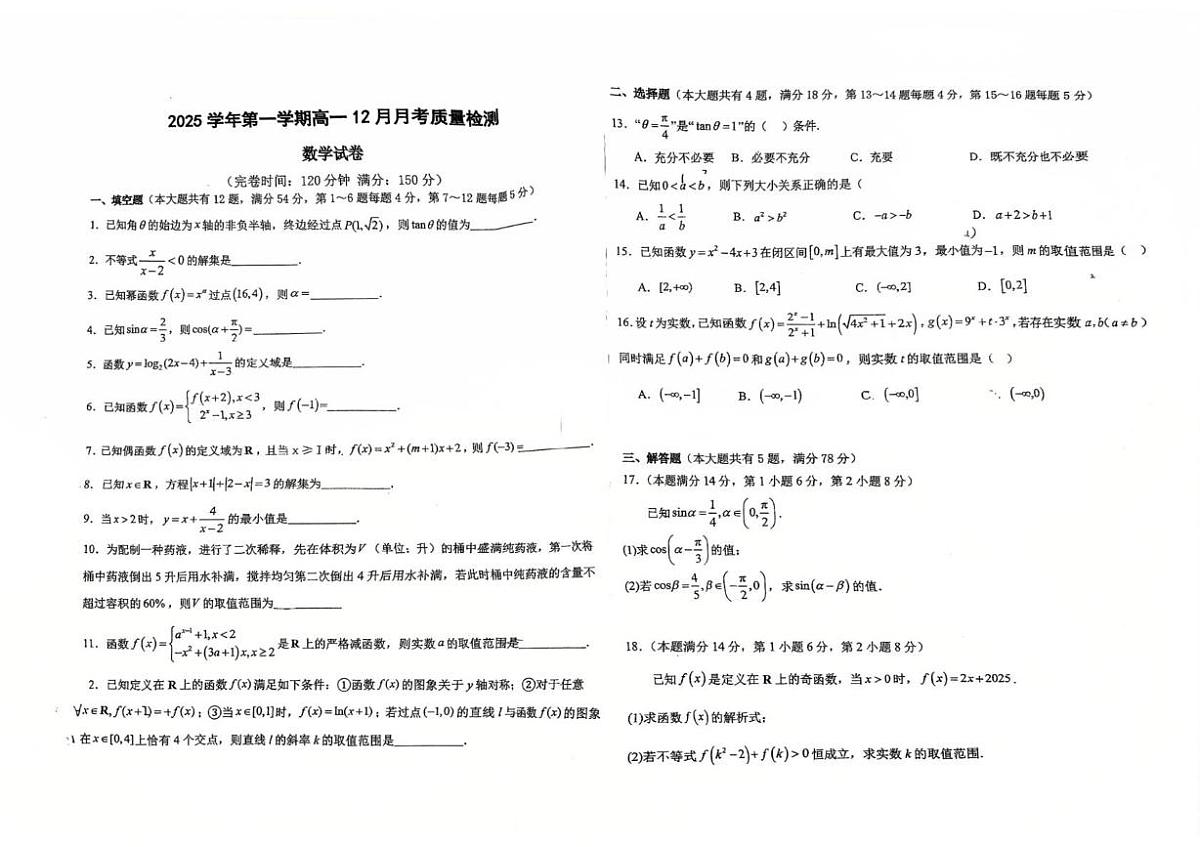 2025 学年第一学期高一 12 月月考质量检测
数学试卷
（完卷时间：120 分钟 满分：150 分）
一、填空题（本大题共有 12 题，满分 54 分，第 1～6 题每题 4 分，第 7～12 题每题 5 分）
1．已知角θ的始边为x轴的非负半轴，终边经过点P(1,√2)，则 tanθ的值为______.
2．不等式 x/(x-2) <0 的解集是______.
3．已知幂函数 f(x)=x^α 过点(16,4)，则α=______.
4．已知 sinα=2/3，则cos(α+π/2)=______.
5．函数 y=log₂(2x-4)+1/(x-3) 的定义域是______.
6．已知函数 f(x)={f(x+2),x<3 2^x-1,x≥3，则 f(-1)=______.
7．已知偶函数 f(x)的定义域为 R，且当 x≥1时，f(x)=x²+(m+1)x+2，则 f(-3)=______.
8．已知 x∈R，方程|x+1|+|2-x|=3的解集为______.
9．当x>2时，y=x+4/(x-2) 的最小值是______.
10．为配制一种药液，进行了二次稀释，先在体积为V（单位：升）的桶中盛满纯药液，第一次将
桶中药液倒出 5 升后用水补满，搅拌均匀第二次倒出 4 升后用水补满，若此时桶中纯药液的含量不
超过容积的60%，则V的取值范围为______
11．函数 f(x)={a^(x-1)+1,x<2 -x²+(3a+1)x,x≥2 是 R 上的严格减函数，则实数 a 的取值范围是______.
2．已知定义在 R 上的函数 f(x)满足如下条件：①函数 f(x)的图象关于 y 轴对称；②对于任意
∀x∈R,f(x+1)=+f(x)；③当x∈[0,1]时，f(x)=ln(x+1)；若过点(-1,0)的直线 l 与函数 f(x)的图象
在 x∈[0,4]上恰有 4 个交点，则直线 l 的斜率 k 的取值范围是______.
二、选择题（本大题共有 4 题，满分 18 分，第 13～14 题每题 4 分，第 15～16 题每题 5 分）
13．“θ=π/4”是“tanθ=1”的（ ）条件.
A．充分不必要 B．必要不充分 C．充要 D．既不充分也不必要
14．已知0<a<b，则下列大小关系正确的是（
A．1/a<1/b B．a²>b² C．-a>-b D．a+2>b+1
）
15．已知函数 y=x²-4x+3在闭区间[0,m]上有最大值为 3，最小值为-1，则 m 的取值范围是（ ）
A．[2,+∞) B．[2,4] C．(-∞,2] D．[0,2]
16．设 t 为实数，已知函数 f(x)=(2^x-1)/(2^x+1)+ln(√(4x²+1)+2x)，g(x)=9^x+t·3^x，若存在实数 a,b(a≠b）
同时满足 f(a)+f(b)=0和g(a)+g(b)=0，则实数 t 的取值范围是（ ）
A．(-∞,-1] B．(-∞,-1) C．(-∞,0] (-∞,0)
三、解答题（本大题共有 5 题，满分 78 分）
17.（本题满分 14 分，第 1 小题 6 分，第 2 小题 8 分）
已知 sinα=1/4,α∈(0,π/2).
(1)求cos(α-π/3)的值；
(2)若cosβ=4/5,β∈(-π/2,0)，求sin(α-β)的值.
18.（本题满分 14 分，第 1 小题 6 分，第 2 小题 8 分）
已知 f(x)是定义在 R 上的奇函数，当 x>0时，f(x)=2x+2025．
(1)求函数 f(x)的解析式；
(2)若不等式 f(k²-2)+f(k)>0恒成立，求实数 k 的取值范围.